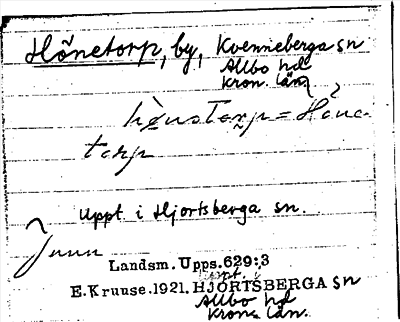 Hönetorp, by, Kvenneberga sn
Allbo hd
Kron. län
hönstorp = Höne-
torp
Uppt. i Hjortsberga sn.
Landsm. Upps. 629:3
E. Kruuse. 1921. HJORTSBERGA sn
Allbo hd
Kron. län.